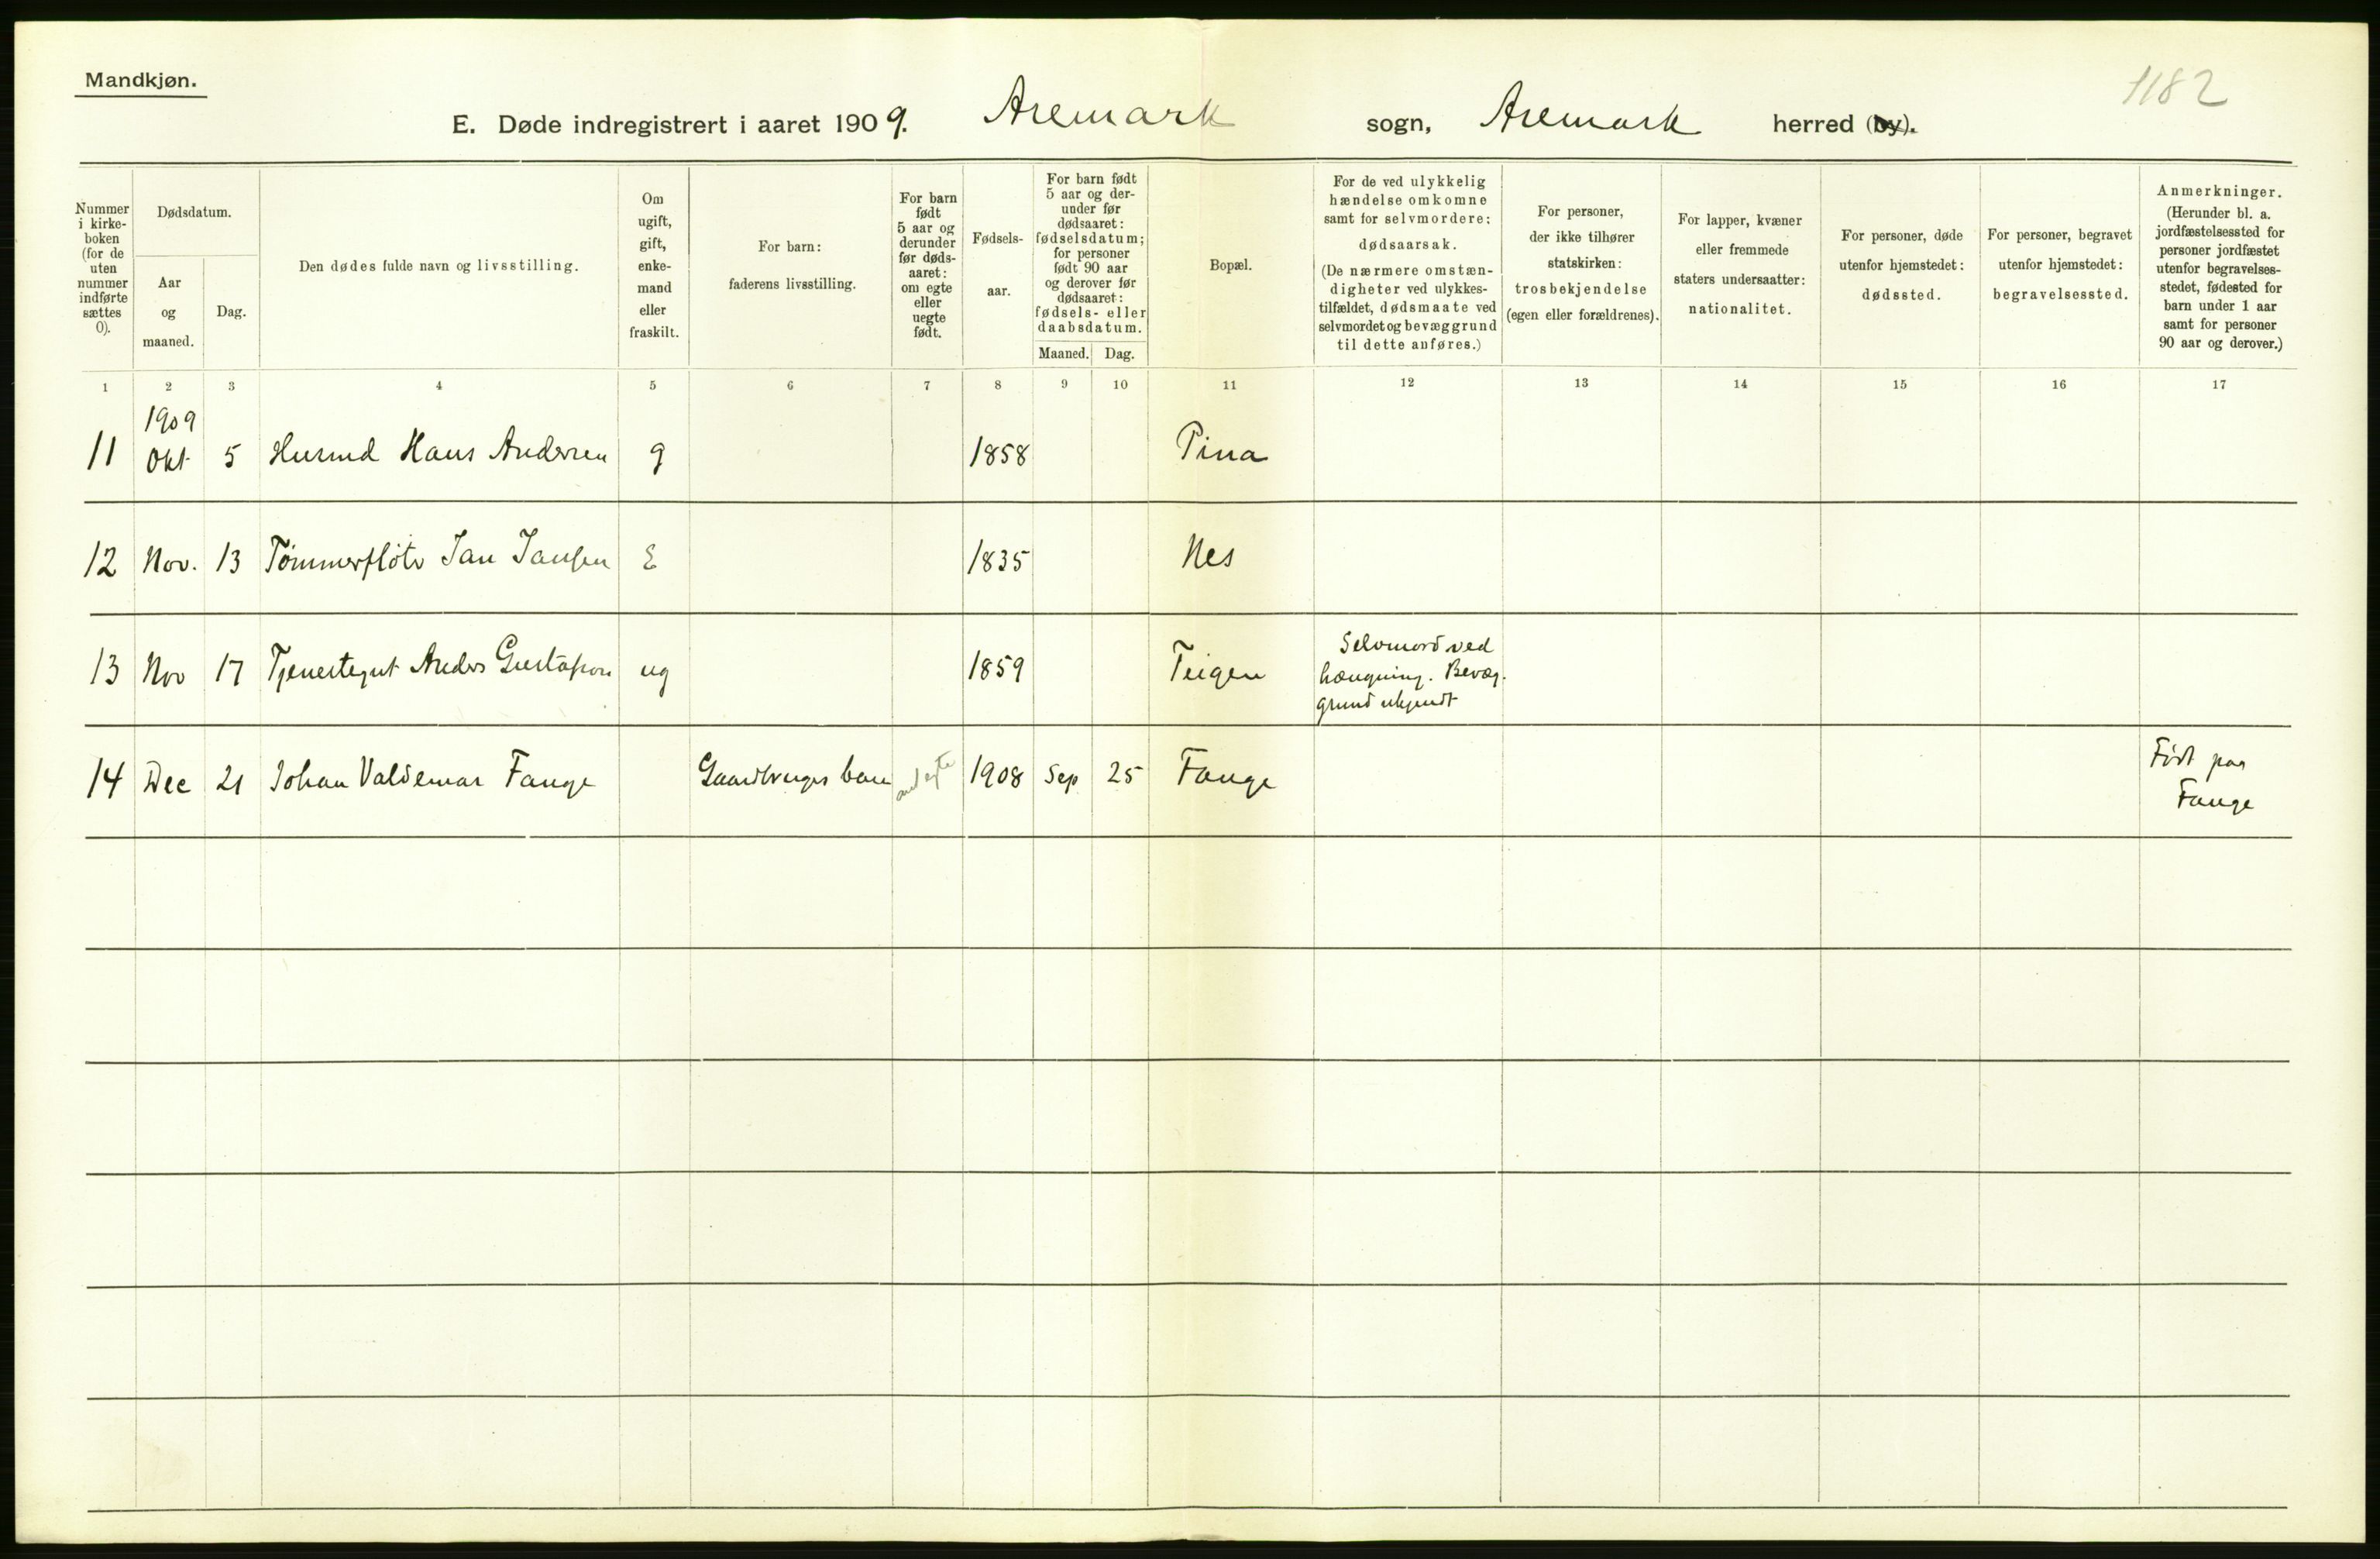 Mandkjøn.
1182
E. Døde indregistrert i aaret 1909. Aremark sogn, Aremark herred (by).
Nummer i kirke- boken (for de uten nummer indførte sættes 0).
Dødsdatum.
Aar og maaned.
Dag.
Den dødes fulde navn og livsstilling.
Om ugift, gift, enke- mand eller fraskilt.
For barn: faderens livsstilling.
For barn født 5 aar og derunder før døds- aaret: om egte eller uegte født.
Fødsels- aar.
For barn født 5 aar og der- under før dødsaaret: fødselsdatum; for personer født 90 aar og derover før dødsaaret: fødsels- eller daabsdatum.
Maaned. Dag.
Bopæl.
For de ved ulykkelig hændelse omkomne samt for selvmordere: dødsaarsak. (De nærmere omstæn- digheter ved ulykkes- tilfældet, dødsmaate ved selvmordet og bevæggrund til dette anføres.)
For personer, der ikke tilhører statskirken: trosbekjendelse (egen eller forældrenes).
For lapper, kvæner eller fremmede staters undersaatter: nationalitet.
For personer, døde utenfor hjemstedet: dødssted.
For personer, begravet utenfor hjemstedet: begravelsessted.
Anmerkninger. (Herunder bl. a. jordfæstelsessted for personer jordfæstet utenfor begravelses- stedet, fødested for barn under 1 aar samt for personer 90 aar og derover.)
1 2 3 4 5 6 7 8 9 10 11 12 13 14 15 16 17
1909
11 Okt 5 Husmd Hans Andersen g 1858 Pina
12 Nov. 13 Tømmerfløter Jan Jansen E 1835 Nes
13 Nov 17 Tjenestegut Anders Gustafson ug 1859 Teigen Selvmord ved
hængning. Bevæg.
grund ukjendt
14 Dec 21 Johan Valdemar Fange Gaardbruger barn egte 1908 Sep 25 Fange Født paa
Fange